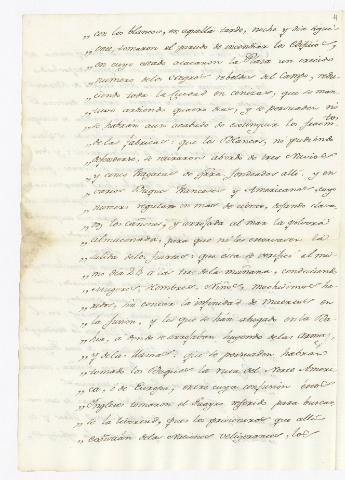 4
" con los blancos, en aquella tarde, noche y dia siguien
" te, tomaron el partido de incendiar los edificios,
" en cuyo estado atacaron la Plaza un crecido
" numero de los Negros rebeldes del Campo, redu
" ciendo toda la Ciudad en cenizas, que se man
" tuvo ardiendo quatro dias, y se persuaden no
" se habran aun acabado de extinguir los fragm.tos
" de las fabricas: que los Blancos, no pudiendo
" defenderse, se retiraron abordo de tres Navios
" y cinco fragatas de grra fondeadas alli, y en
" varios Buques franceses y Americanos, cuyo
" numero regulan en mas de ciento, dejando clava
" dos los cañones, y arrojada al mar la polvora
" almacenada, para que no les estorvasen la
" salida del Puerto: que esta se verificó el mis
" mo dia 23 a las tres de la mañana, conduciendo
" Mugeres, Hombres, Niños, muchisimos he
" ridos, sin contar la infinidad de muertos en
" la funcion, y los que se han ahogado en la Ba
" hia, a donde se arrojaban huyendo de las armas,
" y de las llamas: que se persuaden habran
" tomado los Buques la ruta del Norte Ameri
" ca, ó de Europa; en cuya confusion estos
" Ingleses tomaron el Buque referido para buscar
" se la livertad, que los prisioneros que alli
" existian de las Naciones veligerantes, los